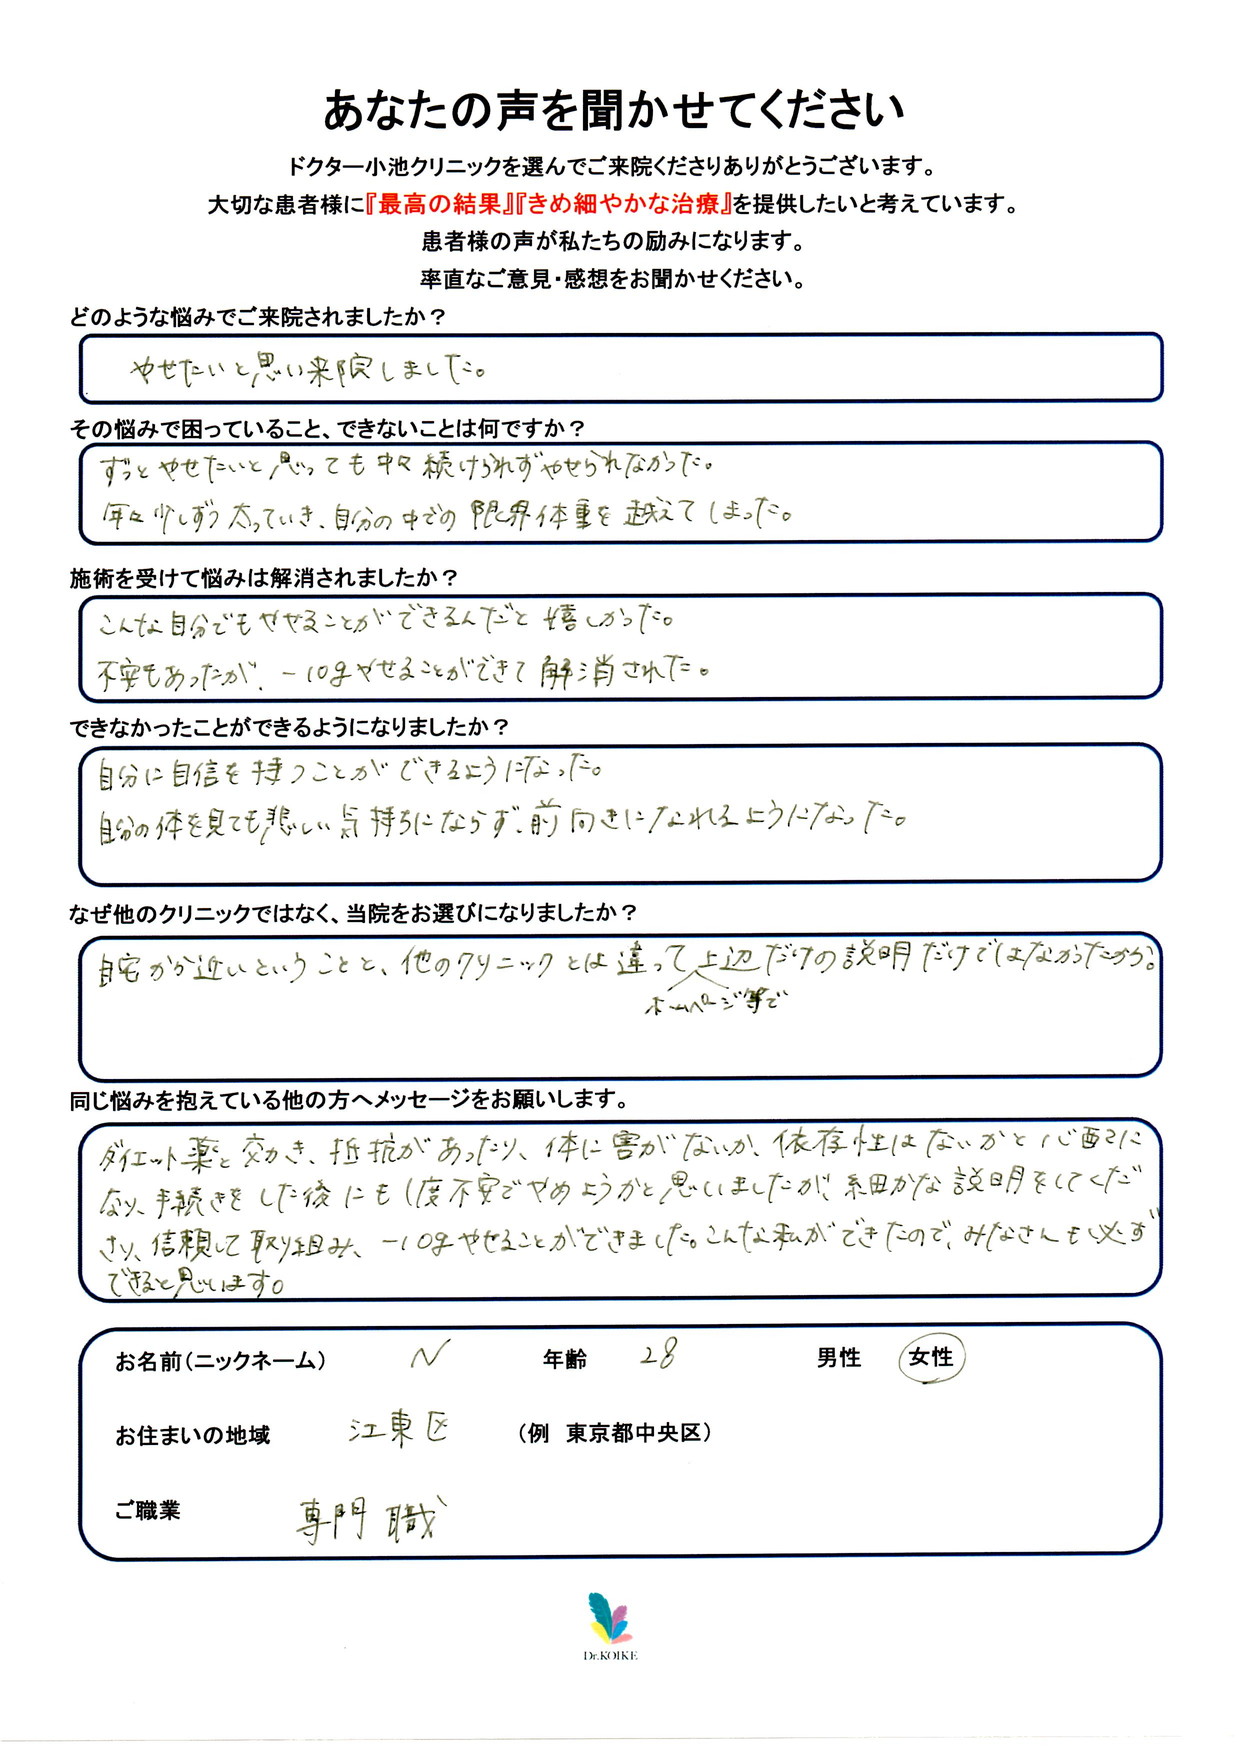 あなたの声を聞かせてください
ドクター小池クリニックを選んでご来院くださりありがとうございます。
大切な患者様に『最高の結果』『きめ細やかな治療』を提供したいと考えています。
患者様の声が私たちの励みになります。
率直なご意見・感想をお聞かせください。
どのような悩みでご来院されましたか？
やせたいと思い来院しました。
その悩みで困っていること、できないことは何ですか？
ずっとやせたいと思っても中々続けられずやせられなかった。
年々少しずつ太っていき、自分の中での限界体重を越えてしまった。
施術を受けて悩みは解消されましたか？
こんな自分でもやせることができるんだと嬉しかった。
不安もあったが、-10gやせることができて解消された。
できなかったことができるようになりましたか？
自分に自信を持つことができるようになった。
自分の体を見ても悲しい気持ちにならず、前向きになれるようになった。
なぜ他のクリニックではなく、当院をお選びになりましたか？
自宅から近いということと、他のクリニックとは違って上辺だけの説明だけではなかったから。
ホームページ等で
同じ悩みを抱えている他の方へメッセージをお願いします。
ダイエット薬と聞き、抵抗があったり、体に害がないか、依存性はないかと心配に
なり、手続きをした後にも1度不安でやめようかと思いましたが、細かな説明をしてくだ
さり、信頼して取り組み、-10gやせることができました。こんな私ができたので、みなさんも必ず
できると思います。
お名前（ニックネーム） N 年齢 28 男性 女性
お住まいの地域 江東区 （例 東京都中央区）
ご職業 専門職
Dr.KOIKE